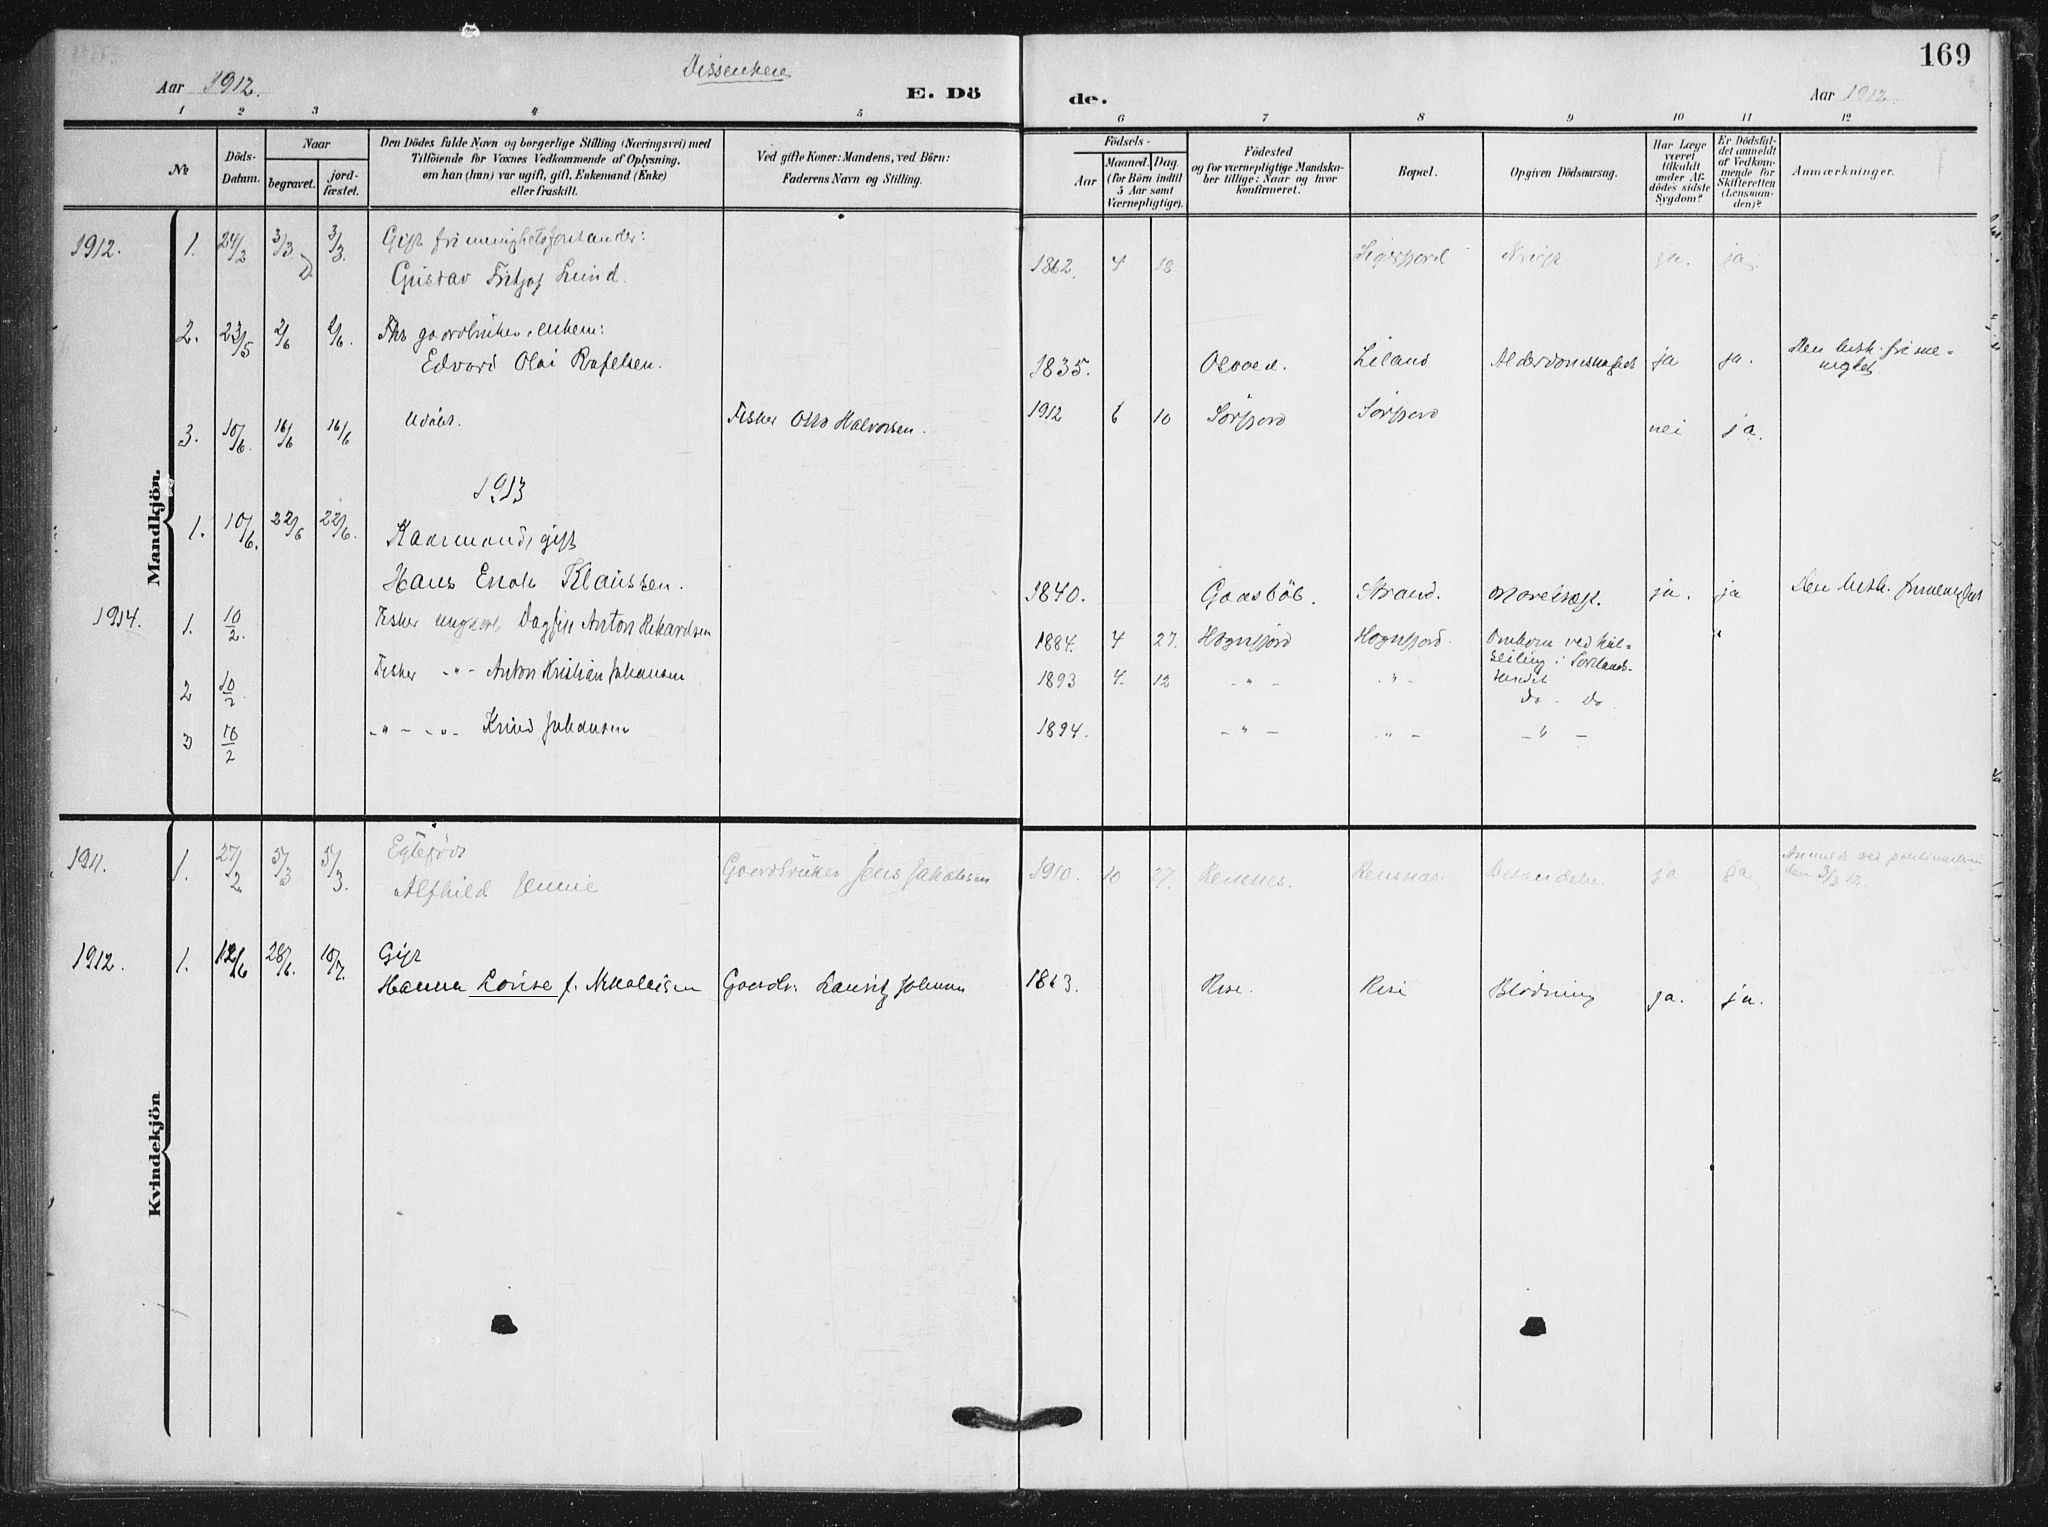 169
Dissenter
Aar 1912.
E. Dö
de.
Aar 1912.
1 2 3 4 5 6 7 8 9 10 11 12
№
Döds-
Datum.
Naar
begravet.
jord-
fæstet.
Den Dödes fulde Navn og borgerlige Stilling (Næringsvei) med
Tilföiende for Voxnes Vedkommende af Oplysning,
om han (hun) var ugift, gift, Enkemand (Enke)
eller fraskilt.
Ved gifte Koner: Mandens, ved Börn:
Faderens Navn og Stilling.
Födsels-
Aar
Maaned.
Dag.
(for Börn indtil
5 Aar samt
Værnepligtige).
Födested
og for værnepligtige Mandska-
ber tillige: Naar og hvor
konfirmeret.
Bopæl.
Opgiven Dödsaarsag.
Har Læge
været
tilkaldt
under Af-
dödes sidste
Sygdom?
Er Dödsfal-
det anmeldt
af Vedkom-
mende for
Skifteretten
(Lensman-
den)?
Anmærkninger.
Mandkjön.
1912. 1. 24/2 3/3 3/3. Gift frimenighetsforstander:
Gustav Fritjof Lund. 1862. 4 18 Sigerfjord ja. ja.
2. 23/5 2/6 2/6. Fhv gaardbruker, enkem:
Edvard Olai Rafelsen. 1835. Liland Alderdomssvaghet ja ja. Den luth. frime-
nighet.
3. 10/6. 16/6 16/6 Udöbt. Fisker Otto Halvorsen. 1912 6 10 Sörfjord Sörfjord nei ja.
1913
1. 10/6. 22/6 22/6. Kaarmand, gift
Hans Enok Klaussen. 1840. Gaasböl. Strand. ja. ja Den luth. frimenighet
1914. 1. 10/2. Fisker ungkarl Dagfin Anton Rikardsen 1884. 4 27. Hognfjord Hognfjord. Omkom ved kul-
seiling i Sortlands-
sundet
2 10/2 Fisker -"- Anton Kristian Johansen 1893 4. 12 -"- -"- Do. Do.
3 10/2 -"- -"- Knud Johansen 1894. -"- -"- -"-
Kvindekjön
1911. 1. 27/2 5/3 5/3. Egtefödt
Alfhild Jennie Gaardbruker Jens Jakobsen 1910. 10 27. Reinsnes. Reinsnes. ja ja
den 3/3 12.
1912. 1. 12/6 28/6. 10/7. Gift
Hanna Lovise f. Nikolaisen Gaardbr. Lauritz Johansen 1863. Rise. Rise Blödning ja. ja.